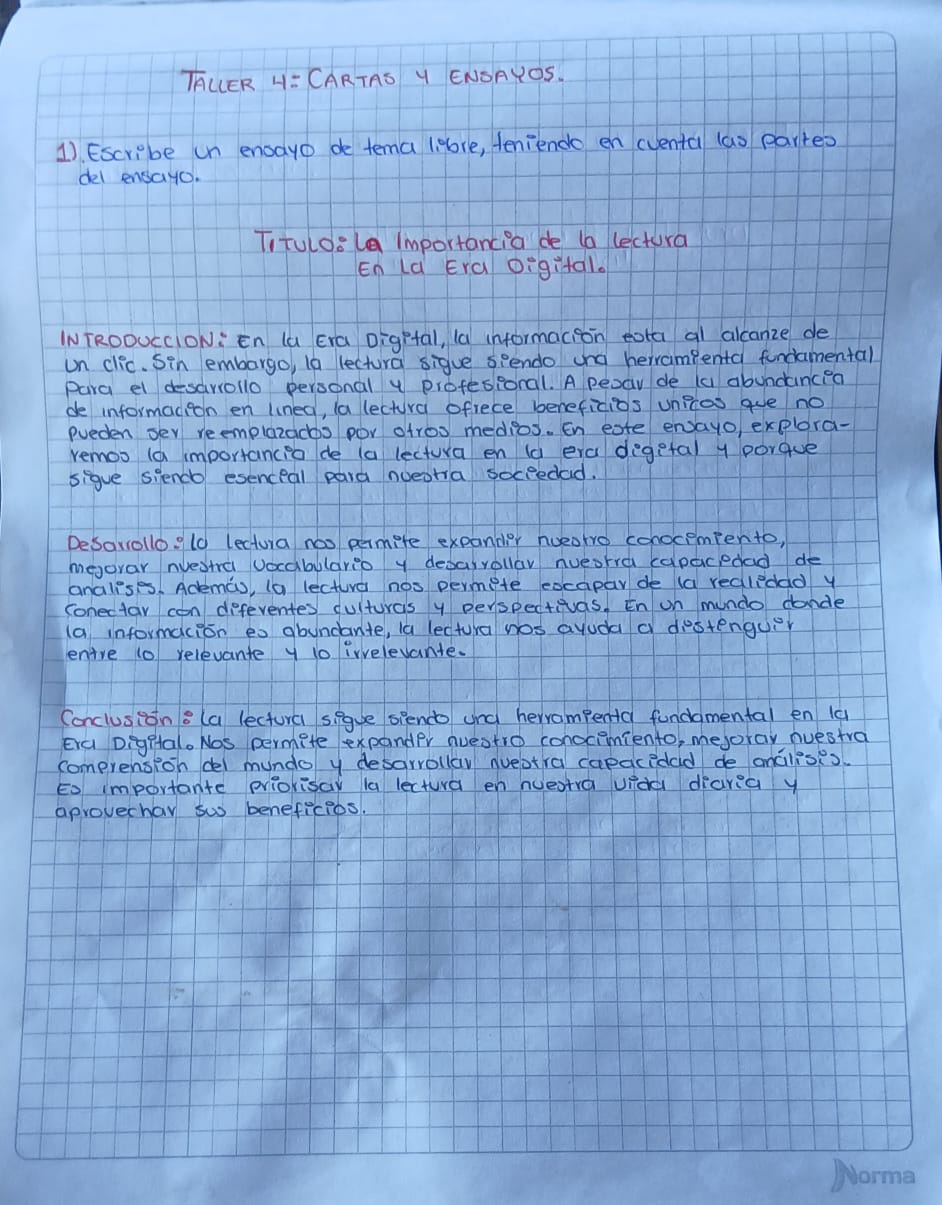 TALLER 4: CARTAS Y ENSAYOS.
1). Escribe un ensayo de tema libre, teniendo en cuenta las partes
del ensayo.
TITULO: La Importancia de la lectura
En La Era Digital.
INTRODUCCION: En la Era Digital, la información esta al alcanze de
un clic. Sin embargo, la lectura sigue siendo una herramienta fundamental
para el desarrollo personal y profesional. A pesar de la abundancia
de información en linea, la lectura ofrece beneficios unicos que no
pueden ser reemplazados por otros medios. En este ensayo, explora-
remos la importancia de la lectura en la era digital y porque
sigue siendo esencial para nuestra sociedad.
Desarrollo: la lectura nos permite expandir nuestro conocimiento,
mejorar nuestra vocabulario y desarrollar nuestra capacidad de
analisis. Además, la lectura nos permite escapar de la realidad y
conectar con diferentes culturas y perspectivas. En un mundo donde
la información es abundante, la lectura nos ayuda a distinguir
entre lo relevante y lo irrelevante.
Conclusión: la lectura sigue siendo una herramienta fundamental en la
Era Digital. Nos permite expandir nuestro conocimiento, mejorar nuestra
comprensión del mundo y desarrollar nuestra capacidad de análisis.
Es importante priorisar la lectura en nuestra vida diaria y
aprovechar sus beneficios.
Norma